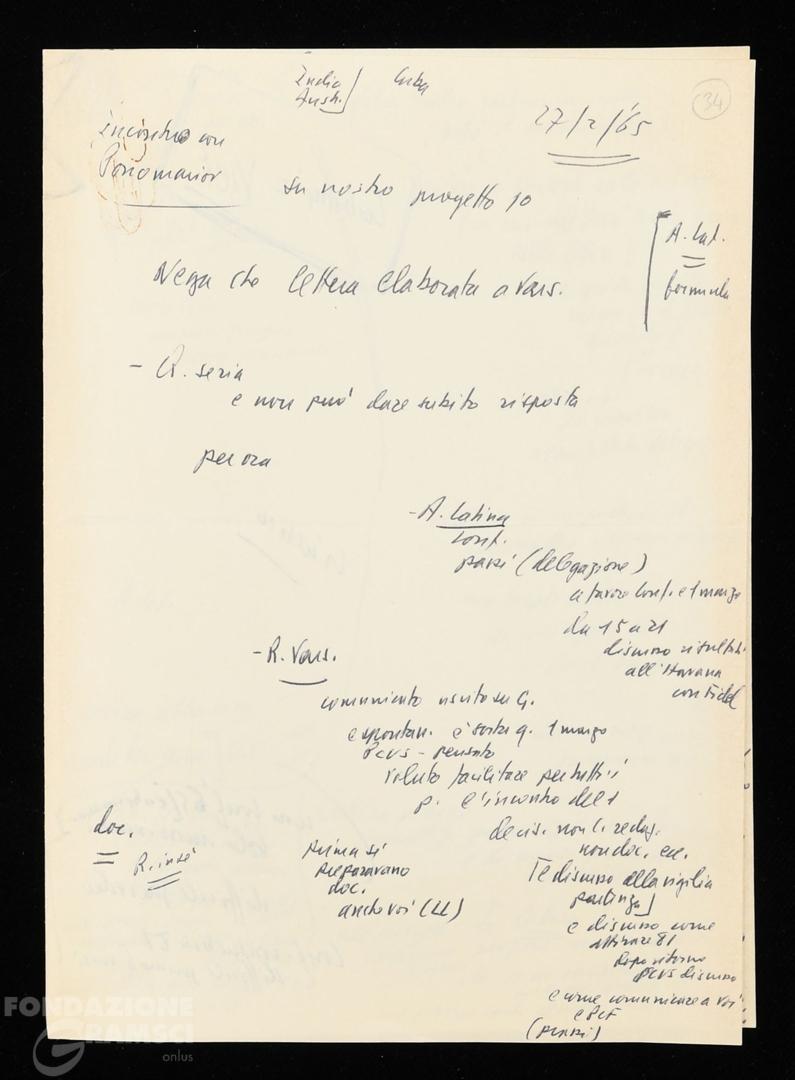 India
Aust.] Cuba
34
27/2/65
incontro con
Ponomariov
su nostro progetto 10
A. Lat.
formula
Nega che lettera elaborata a Vars.
- Q. seria
e non può dare subito risposta
per ora
- A. Latina
Conf.
passi (delegazione)
a favore Conf. e 1 marzo
da 15 a 21
discusso risultati
all'Havana
con Fidel
- R. Vars.
comunicato uscito su G.
e spontan. è sorta q. 1 marzo
PCUS - pensato
voluto facilitare per tutti i
p. l'incontro del 1
decis. non C. redaz.
non doc. ecc.
[e discusso alla vigilia
partenza]
e discusso come
attirare 81
dopo ritorno
PCUS discusso
e come comunicare a voi
e PCF
(passi)
doc.
R. in sé
prima si
preparavano
doc.
anche voi (LL)
FONDAZIONE
GRAMSCI
onlus